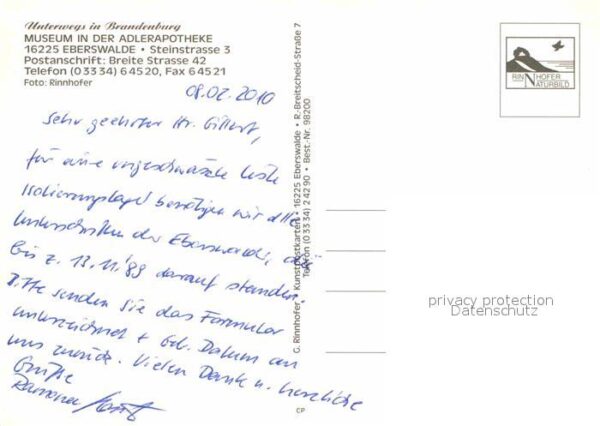 Unterwegs in Brandenburg
MUSEUM IN DER ADLERAPOTHEKE
16225 EBERSWALDE • Steinstrasse 3
Postanschrift: Breite Strasse 42
Telefon (0 33 34) 6 45 20, Fax 6 45 21
Foto: Rinnhofer
08.02.2010
Sehr geehrter Hr.
für eine ungeschwärzte Liste
Isolierungslager benötigen wir alle
Unterschriften der Eberswalder, die
bis z. 13.11.'89 darauf standen.
Bitte senden Sie das Formular
unterzeichnet + Geb. Datum an
uns zurück. Vielen Dank u. herzliche
Grüße
Ramona
G. Rinnhofer • Kunstpostkarten • 16225 Eberswalde • R.-Breitscheid-Straße 7
Telefon (0 33 34) 2 42 90 • Best.-Nr. 98200
CP
RINNHOFER
NATURBILD
privacy protection
Datenschutz